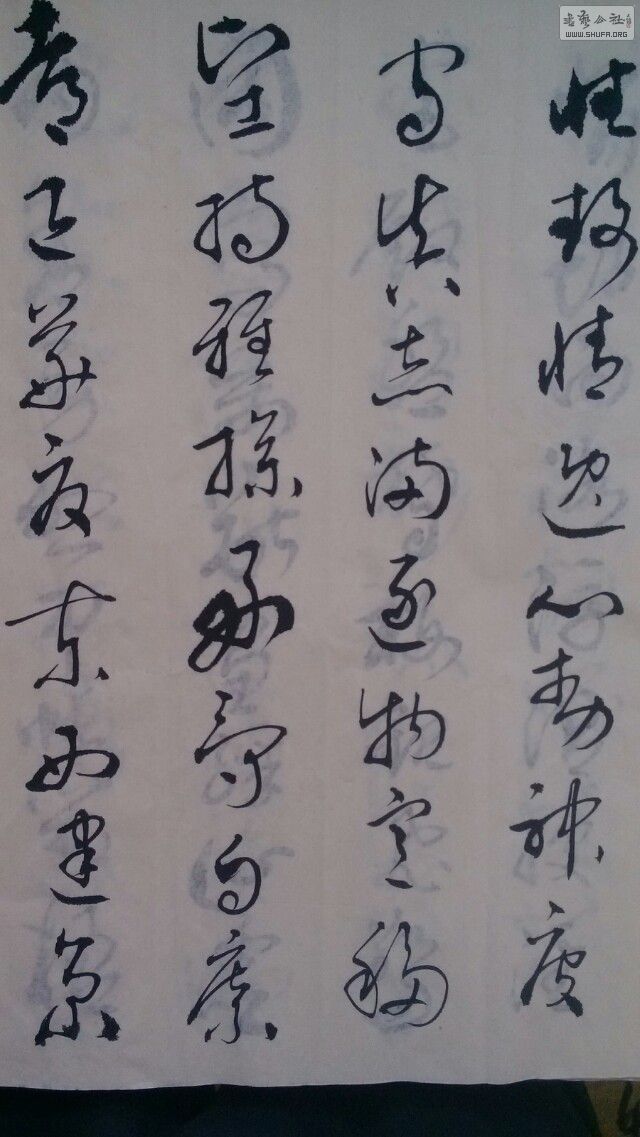 性靜情逸心動神疲
守真志滿逐物意移
堅持雅操好爵自縻
都邑華夏東西建京
書藝公社
WWW.SHUFA.ORG